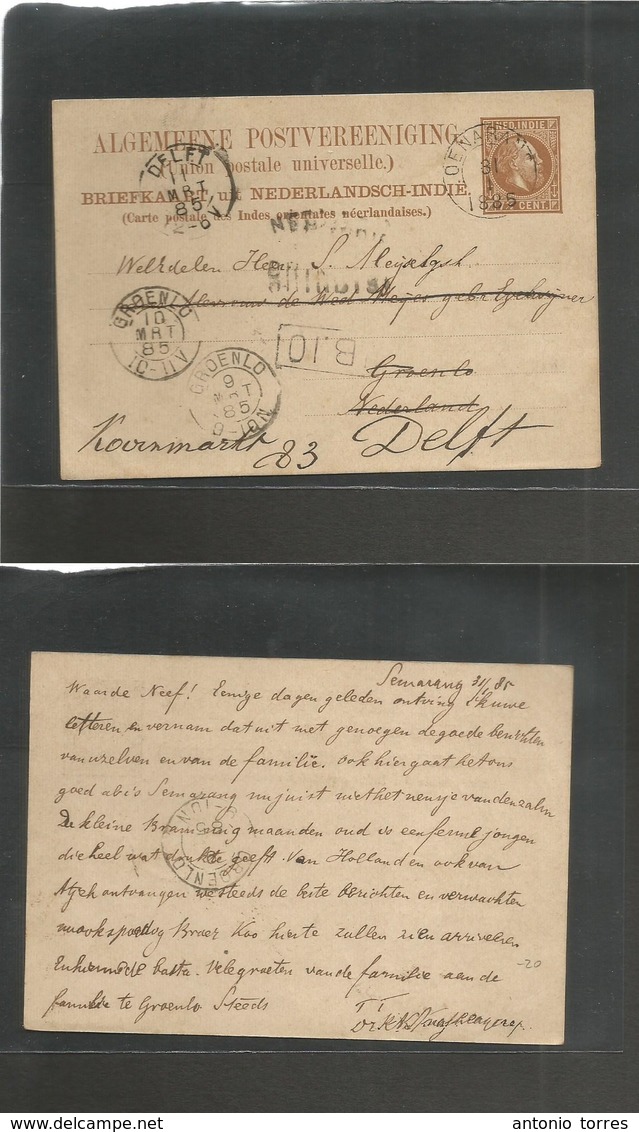 ALGEMEENE POSTVEREENIGING
(Union postale universelle.)
BRIEFKAART uit NEDERLANDSCH-INDIË.
(Carte postale des Indes orientales néerlandaises.)
NED. INDIE
CENT.
1885
DELFT
11
MRT
85
Weledelen Heer S.
GROENLO
10
MRT
85
10-11V
B.10
GROENLO
9
MRT
85
Mevrouw de Wed. Meijer gebr.
Groenlo
Nederland
Koornmarkt 83 Delft
Semarang 31/1 85
Waarde Neef! Eenige dagen geleden ontving ik uwe
letteren en vernam dat uit met genoegen de goede berichten
van uzelven en van de familie. Ook hier gaat het ons
goed al is Semarang nu juist niet het neusje van den zalm
De kleine Bram negen maanden oud is een ferme jongen
die heel wat drukte geeft. Van Holland en ook van
Atjeh ontvangen we steeds de beste berichten en verwachten
Broer Koo hier te zullen zien arriveren
En hiermede basta. Vele groeten van de familie aan de
familie te Groenlo Steeds
TT
-20
www.delcampe.net
antonio torres